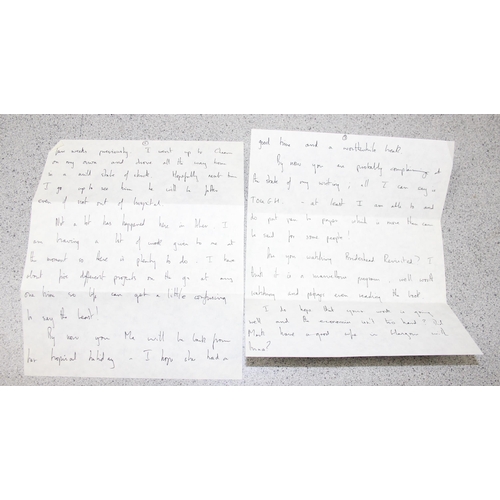 few weeks previously. I went up to
on my own and drove all the way home
in a mild state of shock. Hopefully next time
I go up to see him he will be
even if not out of hospital.
Not a lot has happened here in
am having a lot of work given to me at
the moment so there is plenty to do; I have
about five different projects on the go at any
one time so life can get a little confusing
to say the least!
By now your Ma will be back from
her tropical holiday - I hope she had a
good time and a worthwhile break.
By now you are probably complaining at
the state of my writing, all I can say is
TOUGH - at least I am able to
do put pen to paper which is more than can
be said for some people!
Are you watching Brideshead Revisited? I
think it is a marvellous program, well worth
watching and perhaps even reading the book.
I do hope that your work is going
well and the isn't too hard? Did
Mark have a good in Glasgow